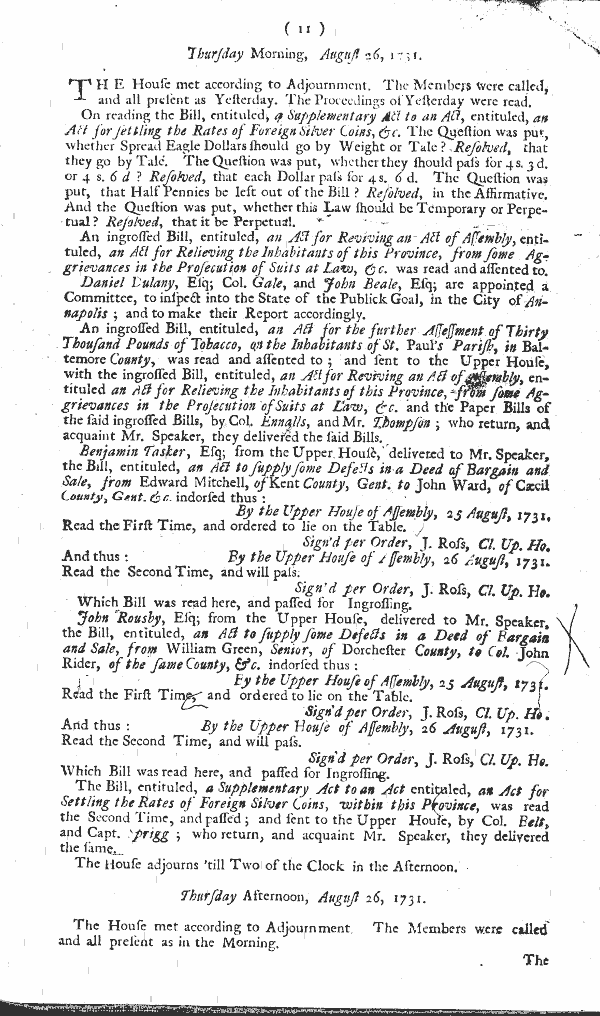 ( 11 )
Thurſday Morning, Auguſt 26, 1731.
THE Houſe met according to Adjournment. The Members were called,
and all preſent as Yeſterday. The Proceedings of Yeſterday were read.
On reading the Bill, entituled, a Supplementary Act to an Act, entituled, an
Act for ſettling the Rates of Foreign Silver Coins, &c. The Queſtion was put,
whether Spread Eagle Dollars ſhould go by Weight or Tale? Reſolved, that
they go by Tale. The Queſtion was put, whether they ſhould paſs for 4 s. 3 d.
or 4 s. 6 d ? Reſolved, that each Dollar paſs for 4 s. 6 d. The Queſtion was
put, that Half Pennies be left out of the Bill ? Reſolved, in the Affirmative.
And the Queſtion was put, whether this Law ſhould be Temporary or Perpe-
tual? Reſolved, that it be Perpetual.
An ingroſſed Bill, entituled, an Act for Reviving an Act of Aſſembly, enti-
tuled, an Act for Relieving the Inhabitants of this Province, from ſome Ag-
grievances in the Proſecution of Suits at Law, &c. was read and aſſented to.
Daniel Dulany, Eſq; Col. Gale, and John Beale, Eſq; are appointed a
Committee, to inſpect into the State of the Publick Goal, in the City of An-
napolis ; and to make their Report accordingly.
An ingroſſed Bill, entituled, an Act for the further Aſſeſſment of Thirty
Thouſand Pounds of Tobacco, on the Inhabitants of St. Paul's Pariſh, in Bal-
temore County, was read and aſſented to ; and ſent to the Upper Houſe,
with the ingroſſed Bill, entituled, an Act for Reviving an Act of Aſſembly, en-
tituled an Act for Relieving the Inhabitants of this Province, from ſome Ag-
grievances in the Proſecution of Suits at Law, &c. and the Paper Bills of
the ſaid ingroſſed Bills, by Col. Ennalls, and Mr. Thompſon ; who return, and
acquaint Mr. Speaker, they delivered the ſaid Bills.
Benjamin Tasker, Eſq; from the Upper Houſe, delivered to Mr. Speaker,
the Bill, entituled, an Act to ſupply ſome Defects in a Deed of Bargain and
Sale, from Edward Mitchell, of Kent County, Gent. to John Ward, of Cæcil
County, Gent. &c. indorſed thus :
By the Upper Houſe of Aſſembly, 25 Auguſt, 1731.
Read the Firſt Time, and ordered to lie on the Table.
Sign'd per Order, J. Roſs, Cl. Up. Ho.
And thus : By the Upper Houſe of Aſſembly, 26 Auguſt, 1731.
Read the Second Time, and will paſs.
Sign'd per Order, J. Roſs, Cl. Up. Ho.
Which Bill was read here, and paſſed for Ingroſſing.
John Rousby, Eſq; from the Upper Houſe, delivered to Mr. Speaker,
the Bill, entituled, an Act to ſupply ſome Defects in a Deed of Bargain
and Sale, from William Green, Senior, of Dorcheſter County, to Col. John
Rider, of the ſame County, &c. indorſed thus :
By the Upper Houſe of Aſſembly, 25 Auguſt, 1731.
Read the Firſt Time, and ordered to lie on the Table.
Sign'd per Order, J. Roſs, Cl. Up. Ho.
And thus : By the Upper Houſe of Aſſembly, 26 Auguſt, 1731.
Read the Second Time, and will paſs.
Sign'd per Order, J. Roſs, Cl. Up. Ho.
Which Bill was read here, and paſſed for Ingroſſing.
The Bill, entituled, a Supplementary Act to an Act entituled, an Act for
Settling the Rates of Foreign Silver Coins, within this Province, was read
the Second Time, and paſſed ; and ſent to the Upper Houſe, by Col. Belt,
and Capt. Sprigg ; who return, and acquaint Mr. Speaker, they delivered
the ſame.
The Houſe adjourns 'till Two of the Clock in the Afternoon.
Thurſday Afternoon, Auguſt 26, 1731.
The Houſe met according to Adjournment. The Members were called
and all preſent as in the Morning.
The